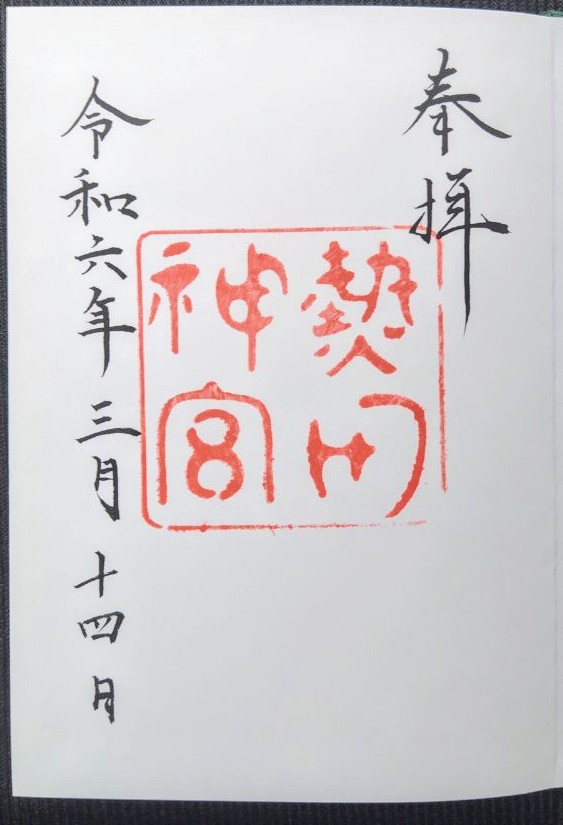 奉拝
熱田
神宮
令和六年三月十四日